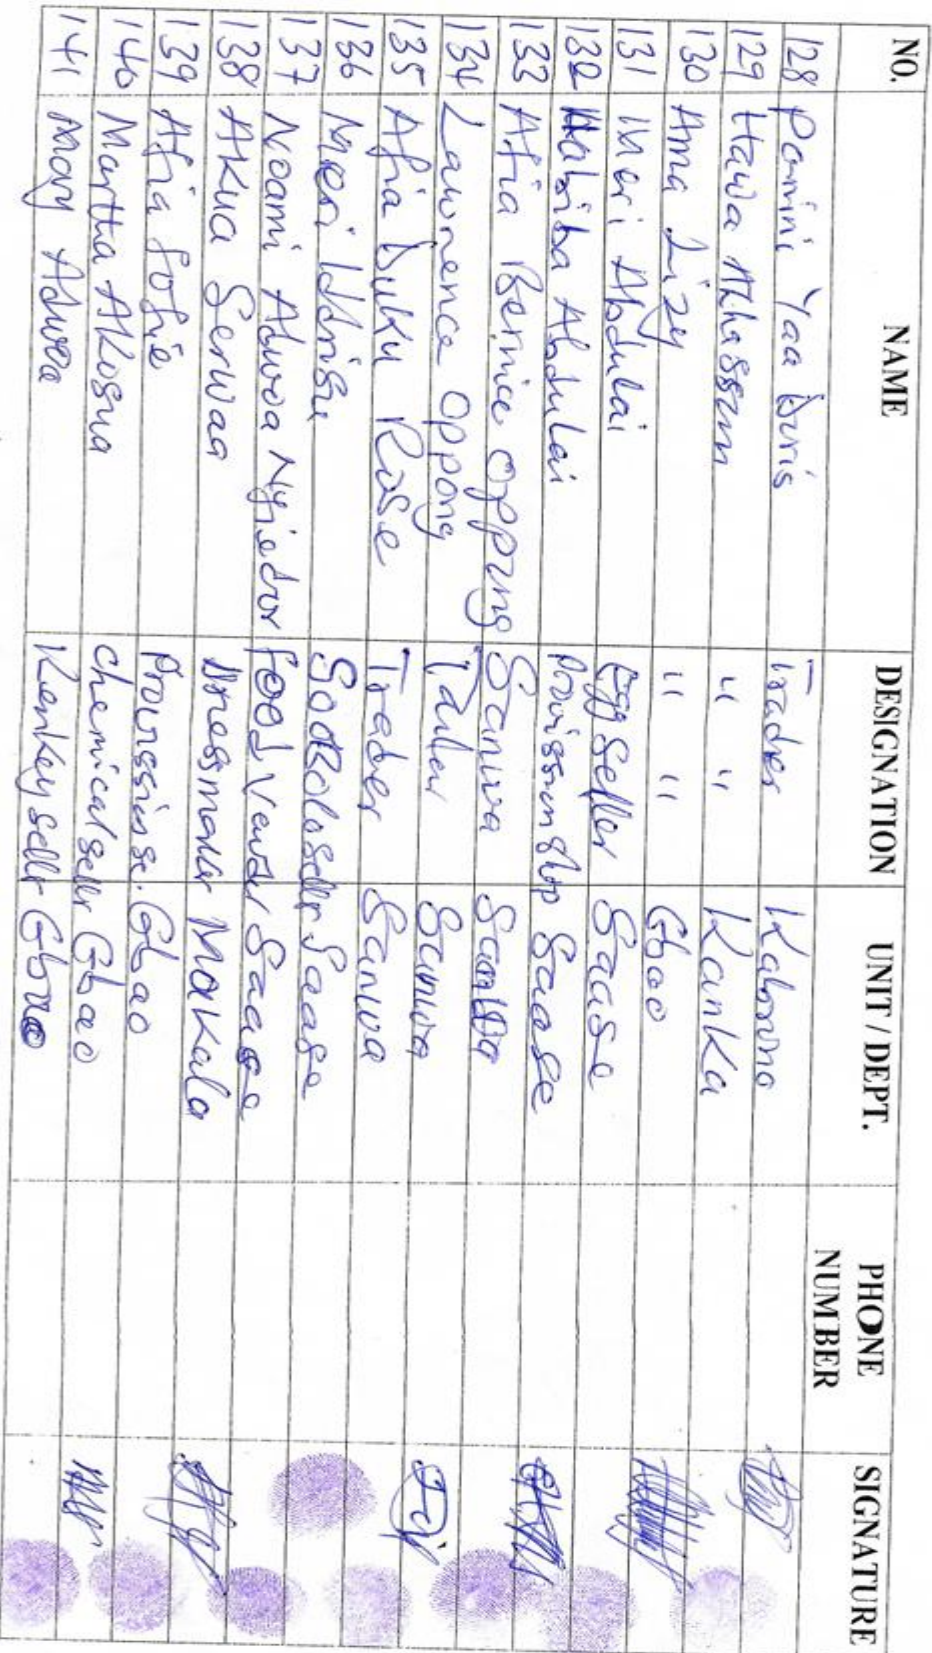 NO. NAME DESIGNATION UNIT / DEPT. PHONE NUMBER SIGNATURE
128 Pomini Yaa Doris Trader Kabono
129 Hawa Alhassan " " Kanka
130 Ama Lizy " " Gbao
131 Meri Abdulai Egg Seller Saase
132 Habiba Abdulai Provission Shop Saase
133 Afia Bernice Oppong Sanwa Sanwa
134 Lawrence Oppong Sanwa
135 Afia Duku Rose Trader Sanwa
136 Meri Iddrisu Saase
137 Noami Adwoa Nyiedor food Vendor Saase
138 Akua Serwaa Dressmaker Makala
139 Afia Sofie Provissin se. Gbao
140 Martha Akosua Chemical seller Gbao
141 Mary Adwoa Kenkey seller Gbao